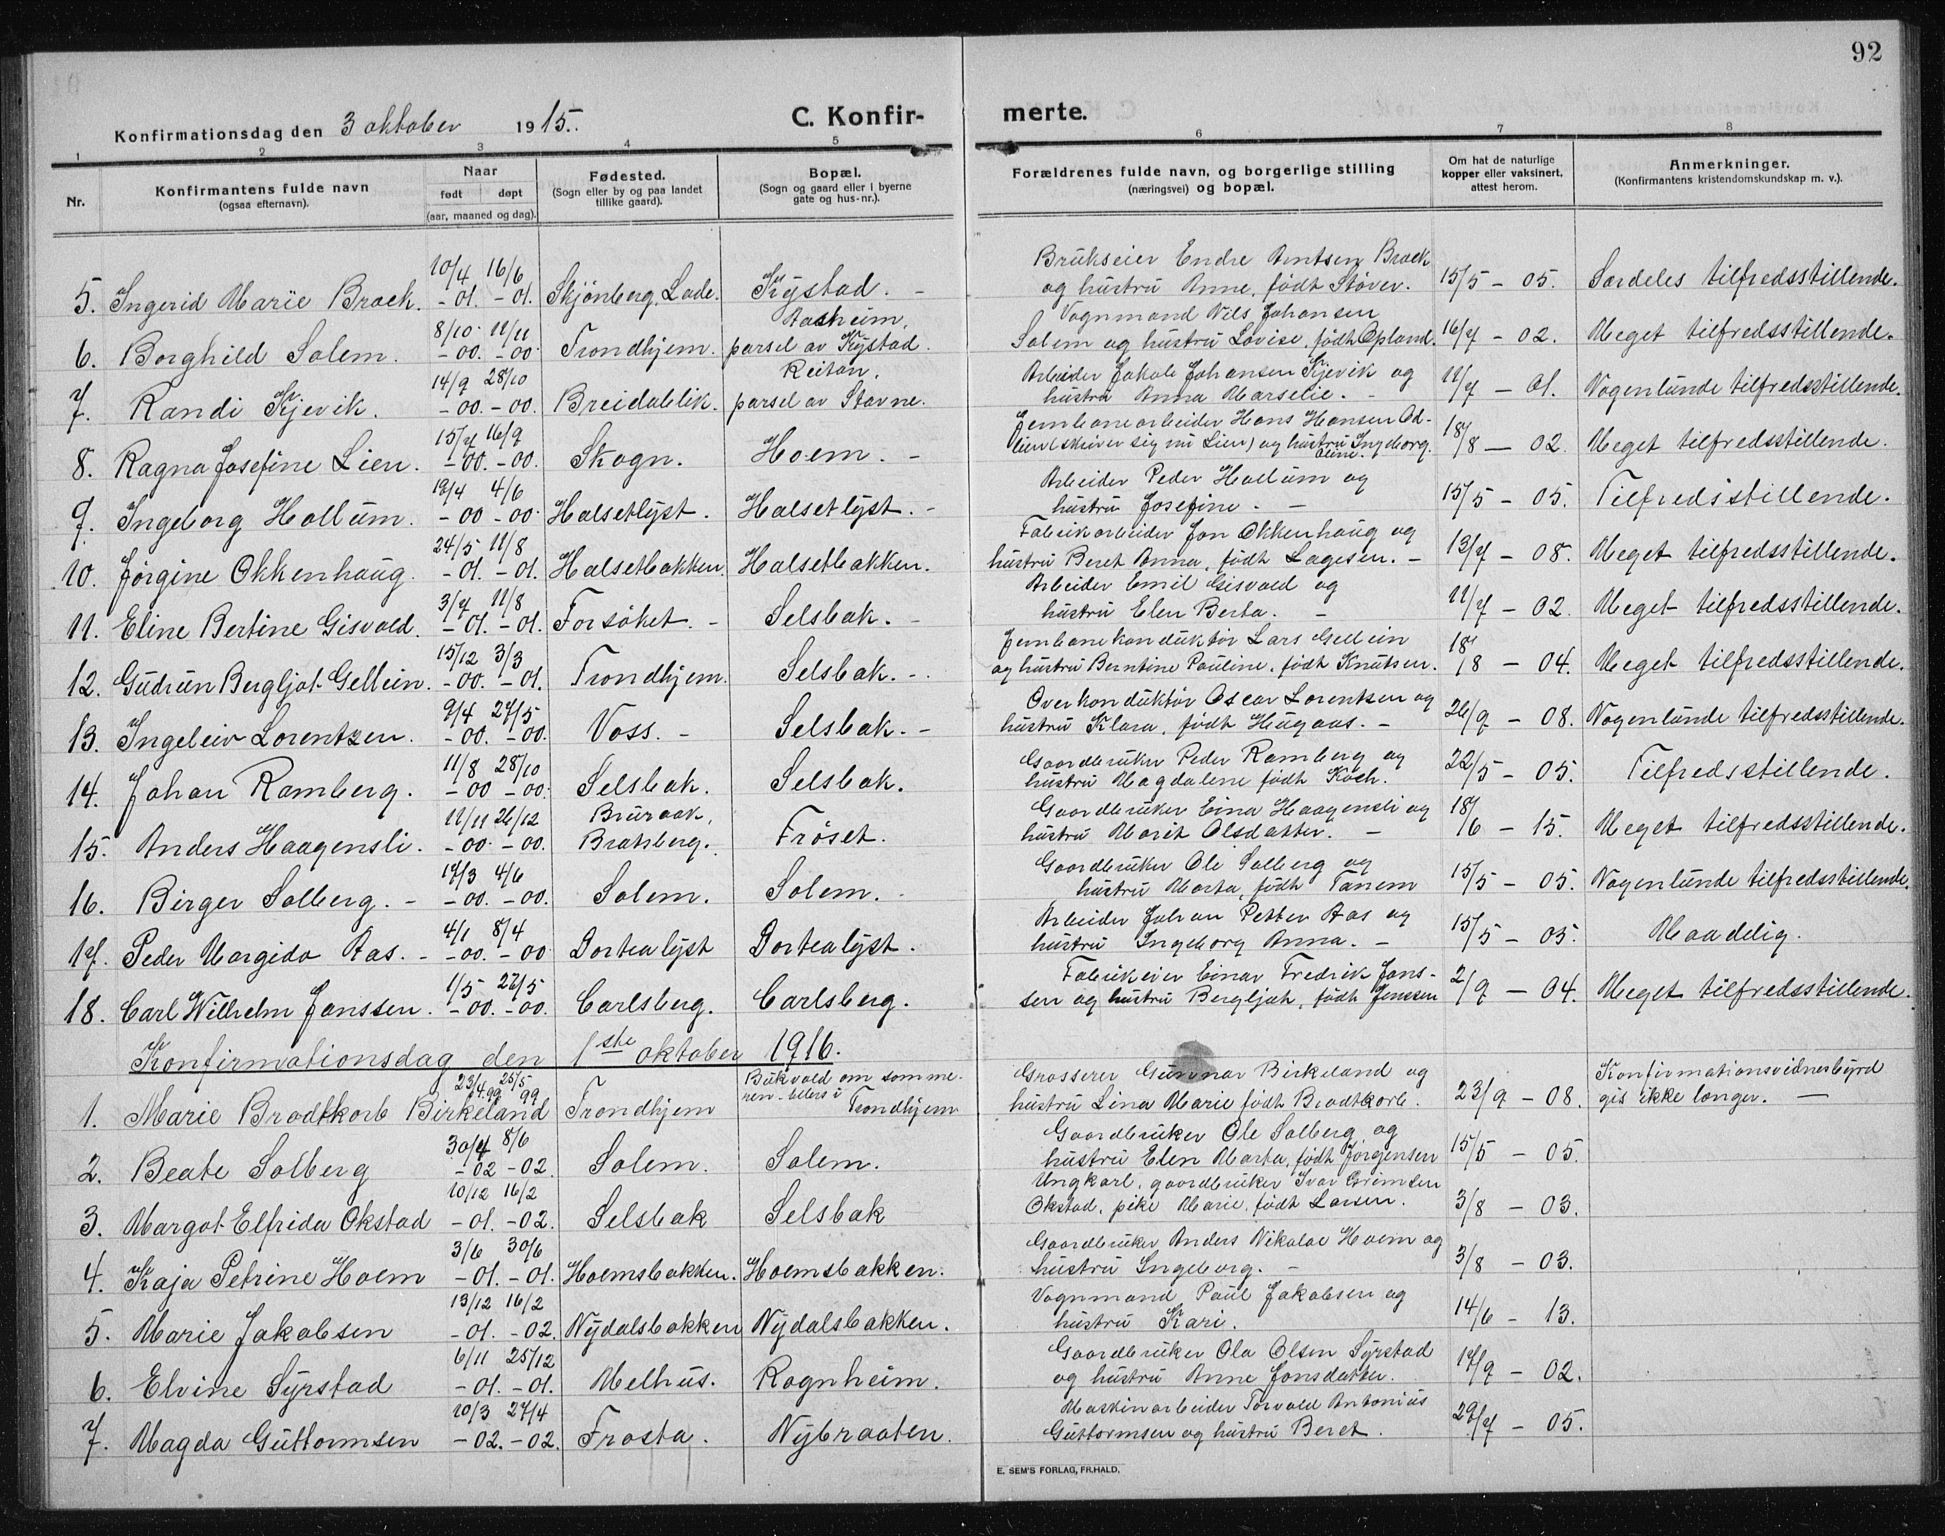 92
Konfirmationsdag den 3 oktober 1915. C. Konfir- merte.
1 2 3 4 5 6 7 8
Nr. Konfirmantens fulde navn (ogsaa efternavn). Naar født døpt (aar, maaned og dag). Fødested. (Sogn eller by og paa landet tillike gaard). Bopæl. (Sogn og gaard eller i byerne gate og hus-nr.). Forældrenes fulde navn, og borgerlige stilling (næringsvei) og bopæl. Om hat de naturlige kopper eller vaksinert, attest herom. Anmerkninger. (Konfirmantens kristendomskundskap m. v.).
5. Ingerid Marie Braek. 10/4 -01. 16/6 -01. Skjönberg, Lade. Kystad. - Brukseier Endre Arntsen Braek og hustru Anne, født Støver. 15/5 - 05. Særdeles tilfredsstillende.
6. Borghild Solem. 8/10 -00. 11/11 -00. Trondhjem. Aasheim, parsel av Kystad. Vognmand Nils Johansen Solem og hustru Lovise, født Opland. 16/7 - 02. Meget tilfredsstillende.
7. Randi Kjevik. 14/9 -00. 28/10 -00. Breidablik. Reitan, parsel av Stavne. Arbeider Jakob Johansen Kjevik og hustru Anna Marselie. - 11/7 - 01. Nogenlunde tilfredsstillende.
8. Ragna Josefine Lien. 15/7 -00. 16/9 -00. Skogn. Hoem. - Jernbanearbeider Hans Hansen Od-lien (skriver sig nu Lien) og hustru Ingeborg Eline. 18/8 - 02. Meget tilfredsstillende.
9. Ingeborg Hollum. 19/4 -00 4/6 -00. Halsetlyst. Halsetlyst. - Arbeider Peder Hollum og hustru Josefine. - 15/5 - 05. Tilfredsstillende.
10. Jørgine Okkenhaug. 24/5 -01. 11/8 -01. Halsetbakken. Halsetbakken. Fabrikarbeider Jon Okkenhaug og hustru Beret Anna, født Lagesen. - 13/7 - 08. Meget tilfredsstillende.
11. Eline Bertine Gisvold. 3/7 -01. 11/8 -01. Forsöket. - Selsbak. - Arbeider Emil Gisvold og hustru Elen Berta. - 11/7 - 02. Meget tilfredsstillende.
12. Gudrun Bergljot Gellein. 15/12 -00. 3/3 -01. Trondhjem. Selsbak. - Jernbanekonduktør Lars Gellein og hustru Berntine Pauline, født Knutsen. 18/8 - 04. Meget tilfredsstillende.
13. Ingeleiv Lorentzen. 9/4 -00. 27/5 -00. Voss. - Selsbak. - Overkonduktør Oscar Lorentzen og hustru Klara, født Hugaas. - 26/9 - 08. Nogenlunde tilfredsstillende.
14. Johan Ramberg. 11/8 -00 28/10 -00. Selsbak. Selsbak. Gaardbruker Peder Ramberg og hustru Magdalene født Koch. 22/5 - 05. Tilfredsstillende.
15. Anders Haagensli. 11/11 -00. 26/12 -00. Bruraak, Bratsberg. Fröset. Gaardbruker Eina Haagensli og hustru Marit Olsdatter. - 18/6 - 15. Meget tilfredsstillende.
16. Birger Solberg. - 17/3 -00. 4/6 -00. Solem. Solem. - Gaardbruker Ole Solberg og hustru Marta, født Tanem 15/5 - 05. Nogenlunde tilfredsstillende.
17. Peder Margido Aas. - 4/1 -00. 8/4 -00 Dortealyst Dortealyst. Arbeider Johan Petter Aas og hustru Ingeborg Anna. - 15/5 - 05. Maadelig.
18. Carl Wilhelm Janssen. 1/5 -00. 27/5 -00. Carlsberg. Carlsberg. Fabrikeier Einar Fredrik Jans-sen og hustru Bergljot, født Jenssen 2/9 - 04. Meget tilfredsstillende.
Konfirmationsdag den 1ste oktober 1916.
1. Marie Brodtkorb Birkeland 23/4 99 25/5 99 Trondhjem Bukvold om somme-ren - ellers i Trondhjem Grosserer Gunnar Birkeland og hustru Lina Marie født Brodtkorb. 23/9 - 08. Konfirmationsvidnesbyrd gis ikke længer. -
2. Beate Solberg 30/4 -02 8/6 -02. Solem. Solem. Gaardbruker Ole Solberg og hustru Elen Marta, født Jørgensen 15/5 - 05.
3. Margot Elfrida Okstad 10/12 -01. 16/2 -02. Selsbak Selsbak Ungkarl, gaardbruker Ivar Grimsen Okstad, pike Marie, født Larsen. 3/8 - 03.
4. Kaja Petrine Hoem 3/6 -01. 30/6 -01. Hoemsbakken. Hoemsbakken. Gaardbruker Anders Nikolai Hoem og hustru Ingeborg. - 3/8 - 03.
5. Marie Jakobsen 13/12 -01. 16/2 -02. Nydalsbakken Nydalsbakken. Vognmand Paul Jakobsen og hustru Kari. 14/6 - 13.
6. Elvine Syrstad 6/11 -01. 25/12 -01. Melhus. Rognheim. Gaardbruker Ola Olsen Syrstad og hustru Anne Jonsdatter. 17/9 - 02.
7. Magda Guttormsen 10/3 -02. 27/4 -02. Frosta. Nybraaten. Maskinarbeider Torvald Antonius Guttormsen og hustru Beret. 29/7 - 05.
E. SEM'S FORLAG, FR.HALD.